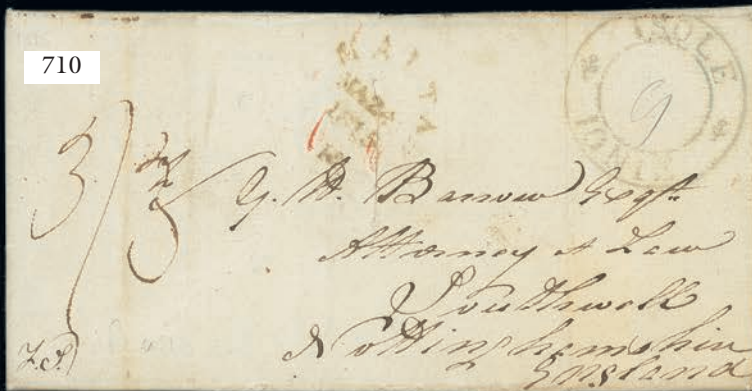 710
MALTA
ISOLE
IONIE
9
3/3
G. H. Barrow Esqr.
Attorney at Law
Southwell
Nottinghamshire
England